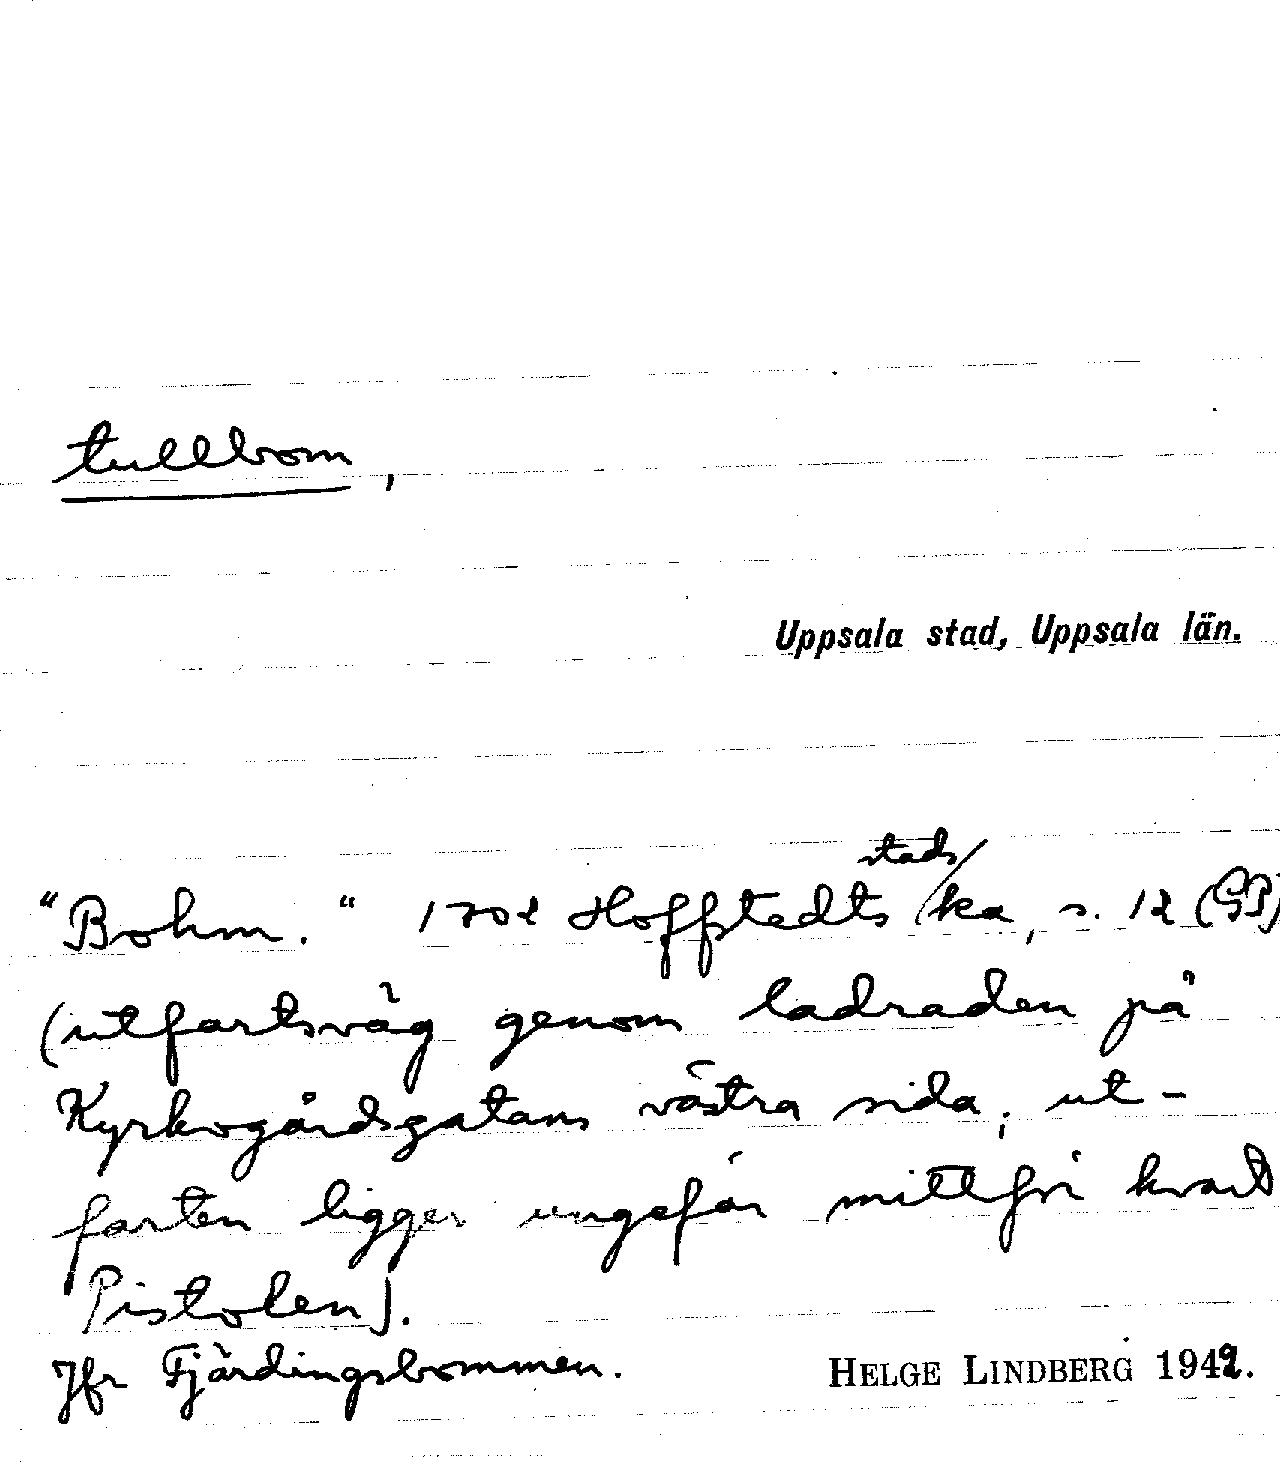 tullbom,
Uppsala stad, Uppsala län.
"Bohm." 1702 Hoffstedts stads/ka, s. 12 (GP)
(utfartsväg genom ladraden på
Kyrkogårdsgatans västra sida; ut-
farten ligger ungefär mittför kvart
Pistolen).
Jfr Fjärdingsbommen.
HELGE LINDBERG 1942.